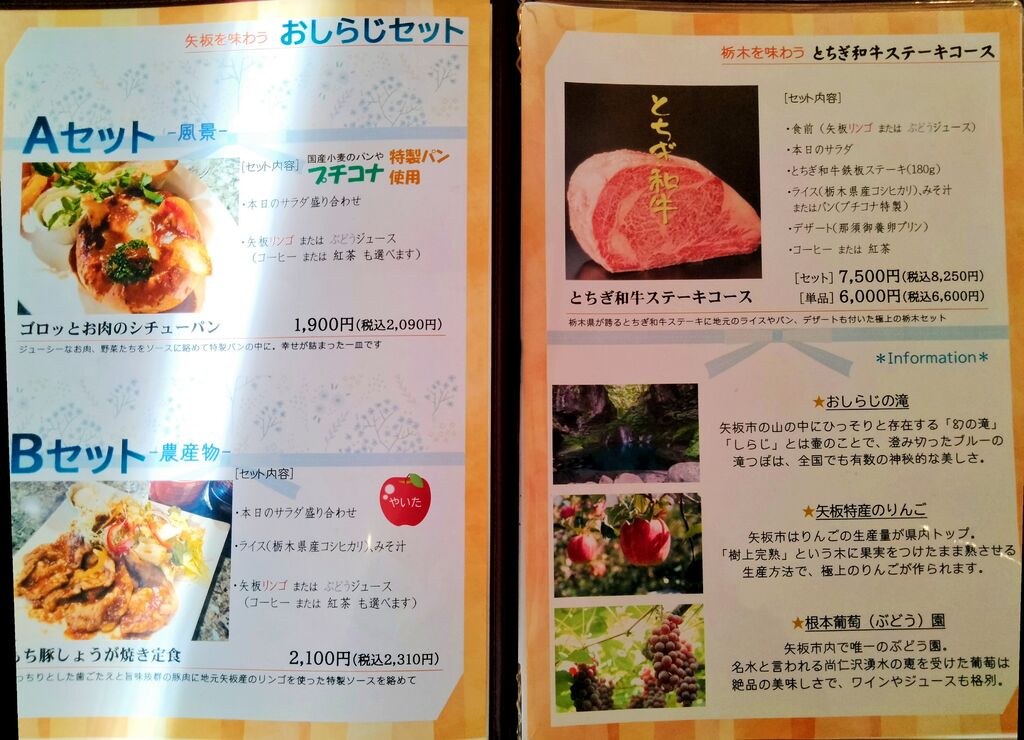 矢板を味わう おしらじセット
Aセット -風景-
[セット内容] 国産小麦のパンや プチコナ 特製パン使用
・本日のサラダ盛り合わせ
・矢板リンゴ または ぶどうジュース
(コーヒー または 紅茶 も選べます)
ゴロッとお肉のシチューパン 1,900円(税込2,090円)
ジューシーなお肉、野菜たちをソースに絡めて特製パンの中に。幸せが詰まった一皿です
Bセット -農産物-
[セット内容]
やいた
・本日のサラダ盛り合わせ
・ライス(栃木県産コシヒカリ)、みそ汁
・矢板リンゴ または ぶどうジュース
(コーヒー または 紅茶 も選べます)
ち豚しょうが焼き定食 2,100円(税込2,310円)
っちりとした歯ごたえと旨味抜群の豚肉に地元矢板産のリンゴを使った特製ソースを絡めて
栃木を味わう とちぎ和牛ステーキコース
とちぎ和牛
[セット内容]
・食前(矢板リンゴ または ぶどうジュース)
・本日のサラダ
・とちぎ和牛鉄板ステーキ(180g)
・ライス(栃木県産コシヒカリ)、みそ汁
またはパン(プチコナ特製)
・デザート(那須御養卵プリン)
・コーヒー または 紅茶
[セット] 7,500円(税込8,250円)
[単品] 6,000円(税込6,600円)
とちぎ和牛ステーキコース
栃木県が誇るとちぎ和牛ステーキに地元のライスやパン、デザートも付いた極上の栃木セット
*Information*
★おしらじの滝
矢板市の山の中にひっそりと存在する「幻の滝」
「しらじ」とは壷のことで、澄み切ったブルーの
滝つぼは、全国でも有数の神秘的な美しさ。
★矢板特産のりんご
矢板市はりんごの生産量が県内トップ。
「樹上完熟」という木に果実をつけたまま熟させる
生産方法で、極上のりんごが作られます。
★根本葡萄(ぶどう)園
矢板市内で唯一のぶどう園。
名水と言われる尚仁沢湧水の恵を受けた葡萄は
絶品の美味しさで、ワインやジュースも格別。